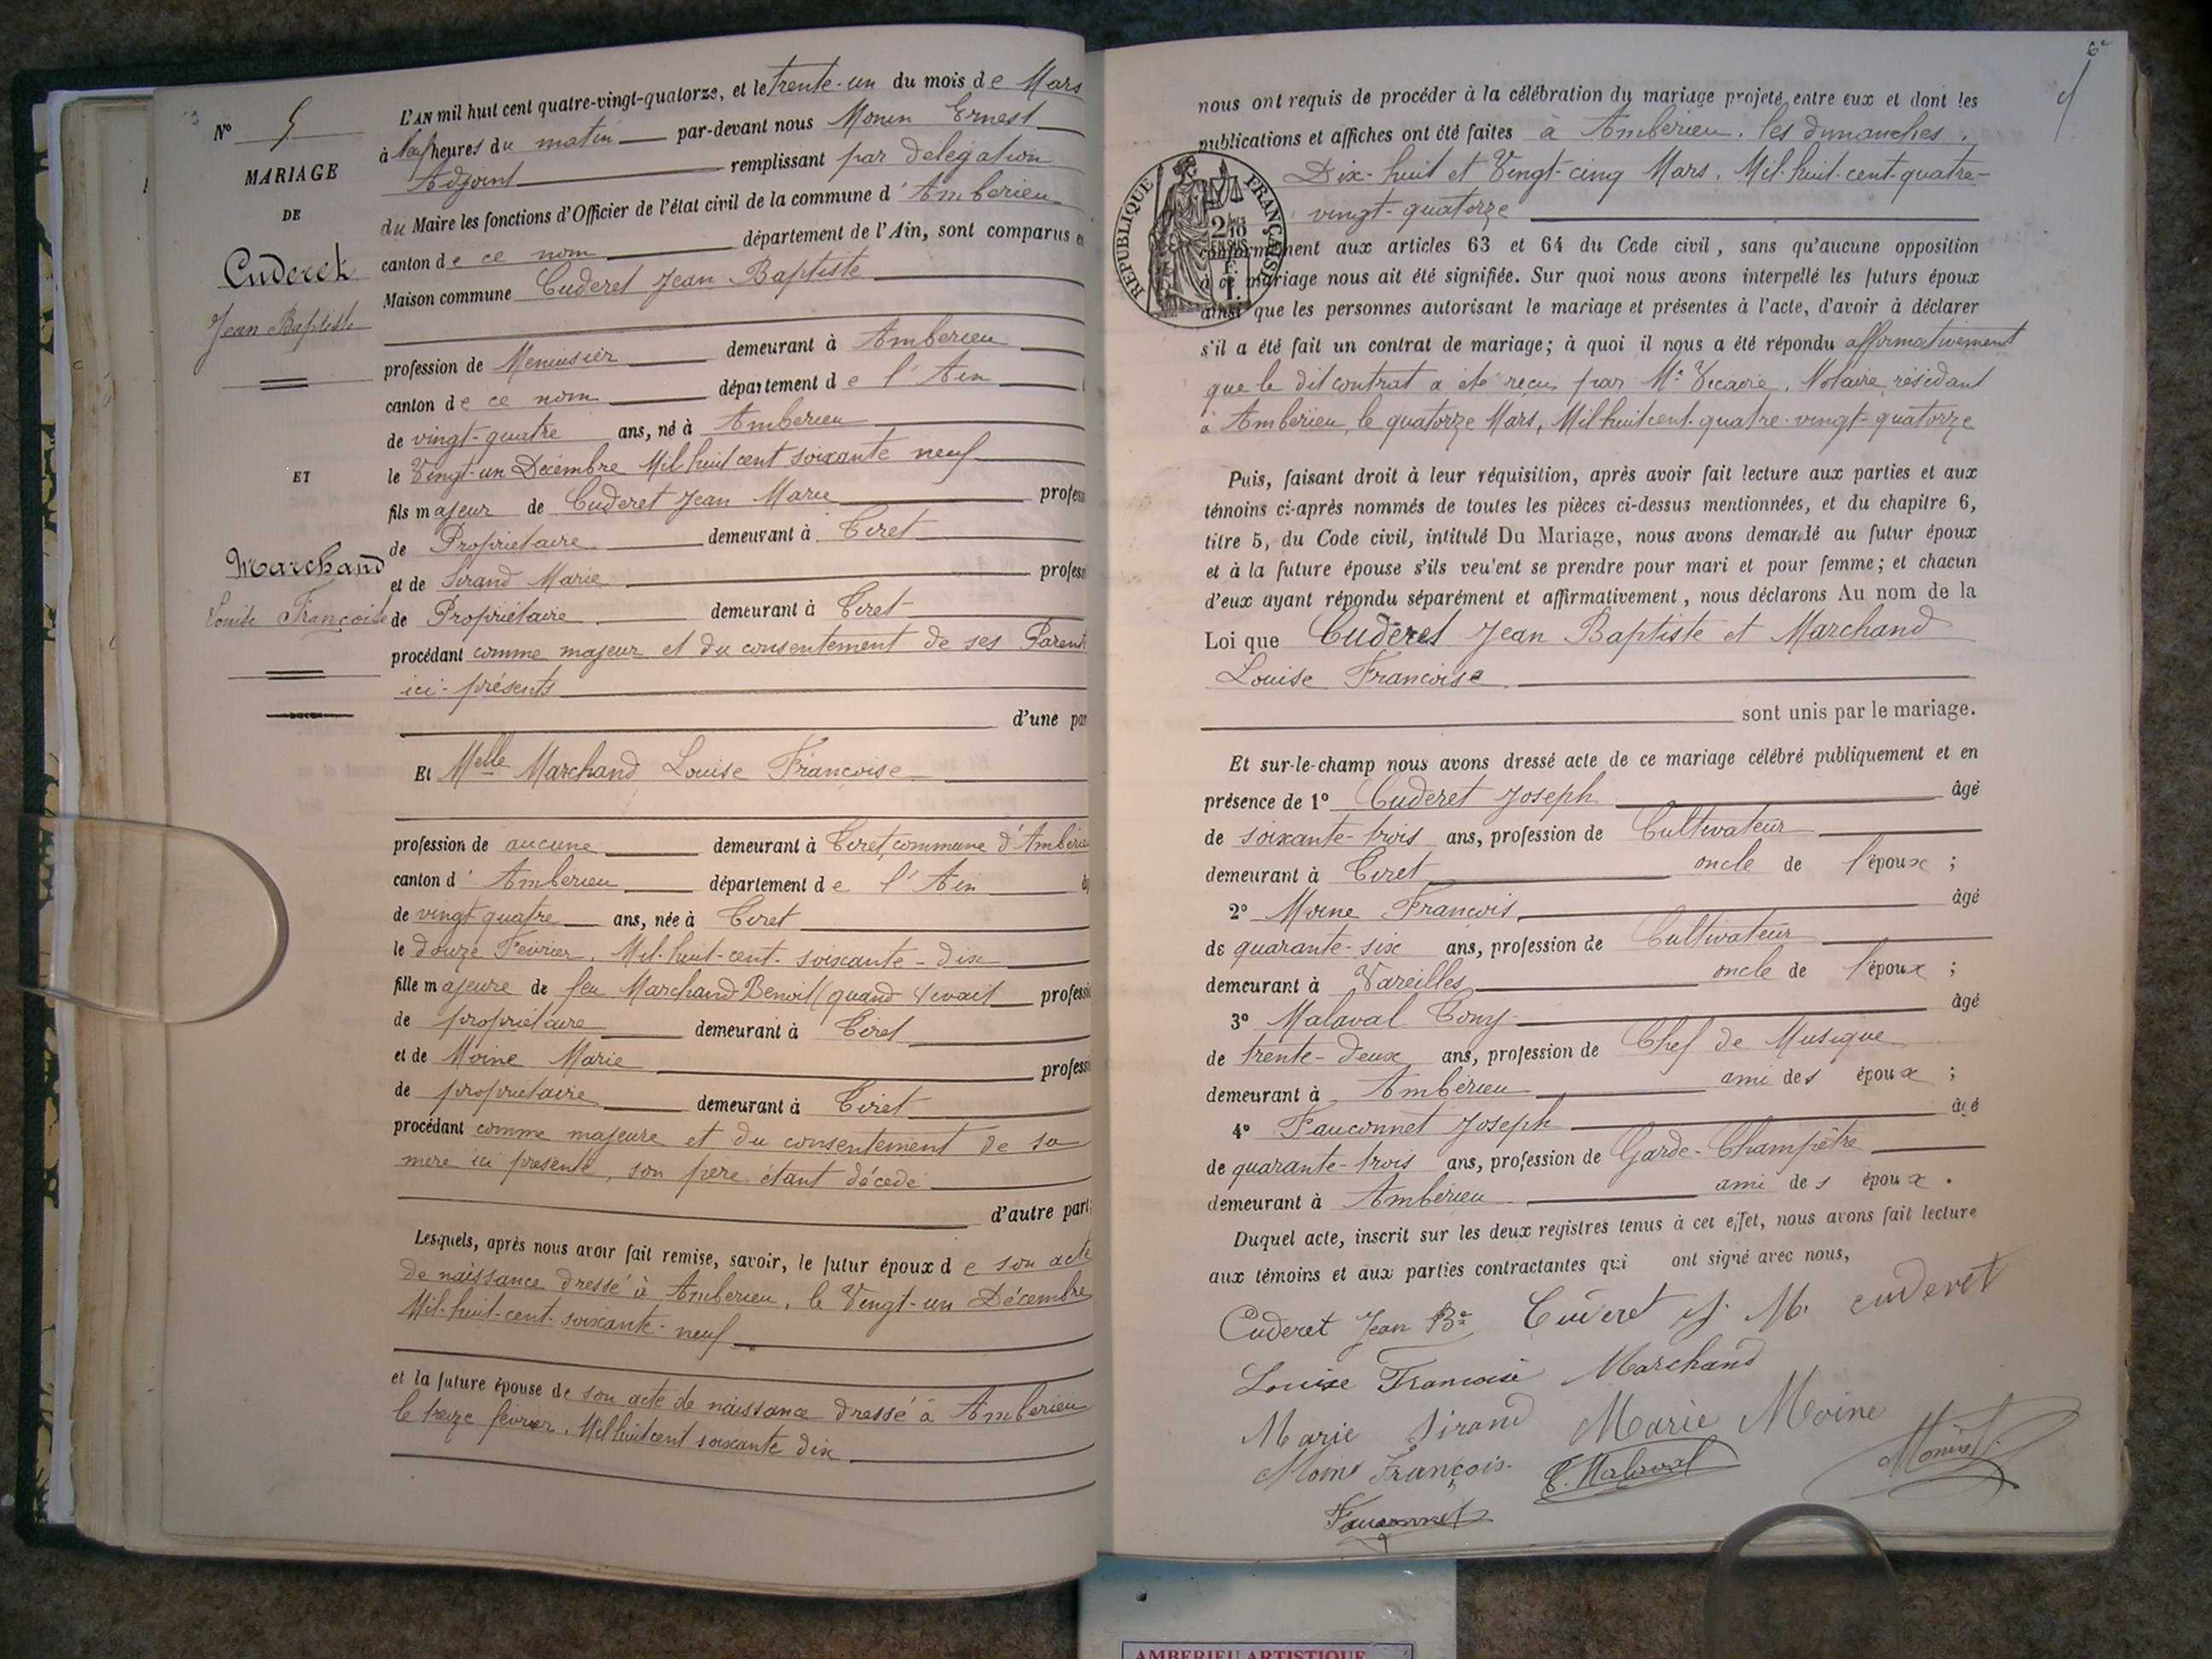 L'AN mil huit cent quatre-vingt-quatorze, et le Trente-un du mois de Mars
à Neuf heures du matin par-devant nous Monin Ernest
Adjoint remplissant par délégation
du Maire les fonctions d'Officier de l'état civil de la commune d'Ambérieu
canton de ce nom département de l'Ain, sont comparus en
Maison commune Cuderet Jean Baptiste
profession de Menuisier demeurant à Ambérieu
canton de ce nom département de l'Ain
de vingt-quatre ans, né à Ambérieu
le Vingt-un Décembre Mil huit cent soixante neuf
fils majeur de Cuderet Jean Marie profess
de Propriétaire demeurant à Tiret
et de Sirand Marie profess
de Propriétaire demeurant à Tiret
procédant comme majeur et du consentement de ses Parents
ici-présents
d'une par
Et Melle Marchand Louise Françoise
profession de aucune demeurant à Tiret, commune d'Ambérieu
canton d'Ambérieu département de l'Ain âg
de vingt quatre ans, née à Tiret
le douze Février, Mil-huit-cent-soixante-dix
fille majeure de feu Marchand Benoit (quand vivait professi
de propriétaire demeurant à Tiret
et de Moine Marie professi
de propriétaire demeurant à Tiret
procédant comme majeure et du consentement de sa
mère ici présente, son père étant décédé
d'autre part;
Lesquels, après nous avoir fait remise, savoir, le futur époux de son acte
de naissance dressé à Ambérieu, le Vingt-un Décembre
Mil-huit-cent-soixante-neuf
et la future épouse de son acte de naissance dressé à Ambérieu
le treize février, Mil huit cent soixante dix
N° 5
MARIAGE
DE
Cuderet
Jean Baptiste
ET
Marchand
Louise Françoise
6e
nous ont requis de procéder à la célébration du mariage projeté entre eux et dont les
publications et affiches ont été faites à Ambérieu, les dimanches,
Dix-huit et Vingt-cinq Mars, Mil-huit-cent-quatre-
vingt-quatorze
conformément aux articles 63 et 64 du Code civil, sans qu'aucune opposition
à ce mariage nous ait été signifiée. Sur quoi nous avons interpellé les futurs époux
ainsi que les personnes autorisant le mariage et présentes à l'acte, d'avoir à déclarer
s'il a été fait un contrat de mariage; à quoi il nous a été répondu affirmativement
que le dit contrat a été reçu par Me Vicaire, Notaire, résidant
à Ambérieu, le quatorze Mars, Mil huit cent-quatre-vingt-quatorze
Puis, faisant droit à leur réquisition, après avoir fait lecture aux parties et aux
témoins ci-après nommés de toutes les pièces ci-dessus mentionnées, et du chapitre 6,
titre 5, du Code civil, intitulé Du Mariage, nous avons demandé au futur époux
et à la future épouse s'ils veulent se prendre pour mari et pour femme; et chacun
d'eux ayant répondu séparément et affirmativement, nous déclarons Au nom de la
Loi que Cuderet Jean Baptiste et Marchand
Louise Françoise
sont unis par le mariage.
Et sur-le-champ nous avons dressé acte de ce mariage célébré publiquement et en
présence de 1° Cuderet Joseph âgé
de soixante-trois ans, profession de Cultivateur
demeurant à Tiret oncle de l'époux;
2° Moine François âgé
de quarante-six ans, profession de Cultivateur
demeurant à Vareilles oncle de l'époux;
3° Malaval Tony âgé
de trente-deux ans, profession de Chef de Musique
demeurant à Ambérieu ami des époux;
4° Fauconnet Joseph âgé
de quarante-trois ans, profession de Garde-Champêtre
demeurant à Ambérieu ami des époux.
Duquel acte, inscrit sur les deux registres tenus à cet effet, nous avons fait lecture
aux témoins et aux parties contractantes qui ont signé avec nous,
Cuderet Jean Bte Cuderet J. M. cuderet
Louise Francoise Marchand
Marie Sirand Marie Moine
Moine François T. Malaval
Fauconnet
RÉPUBLIQUE FRANÇAISE
AMBERIEU ARTISTIQUE